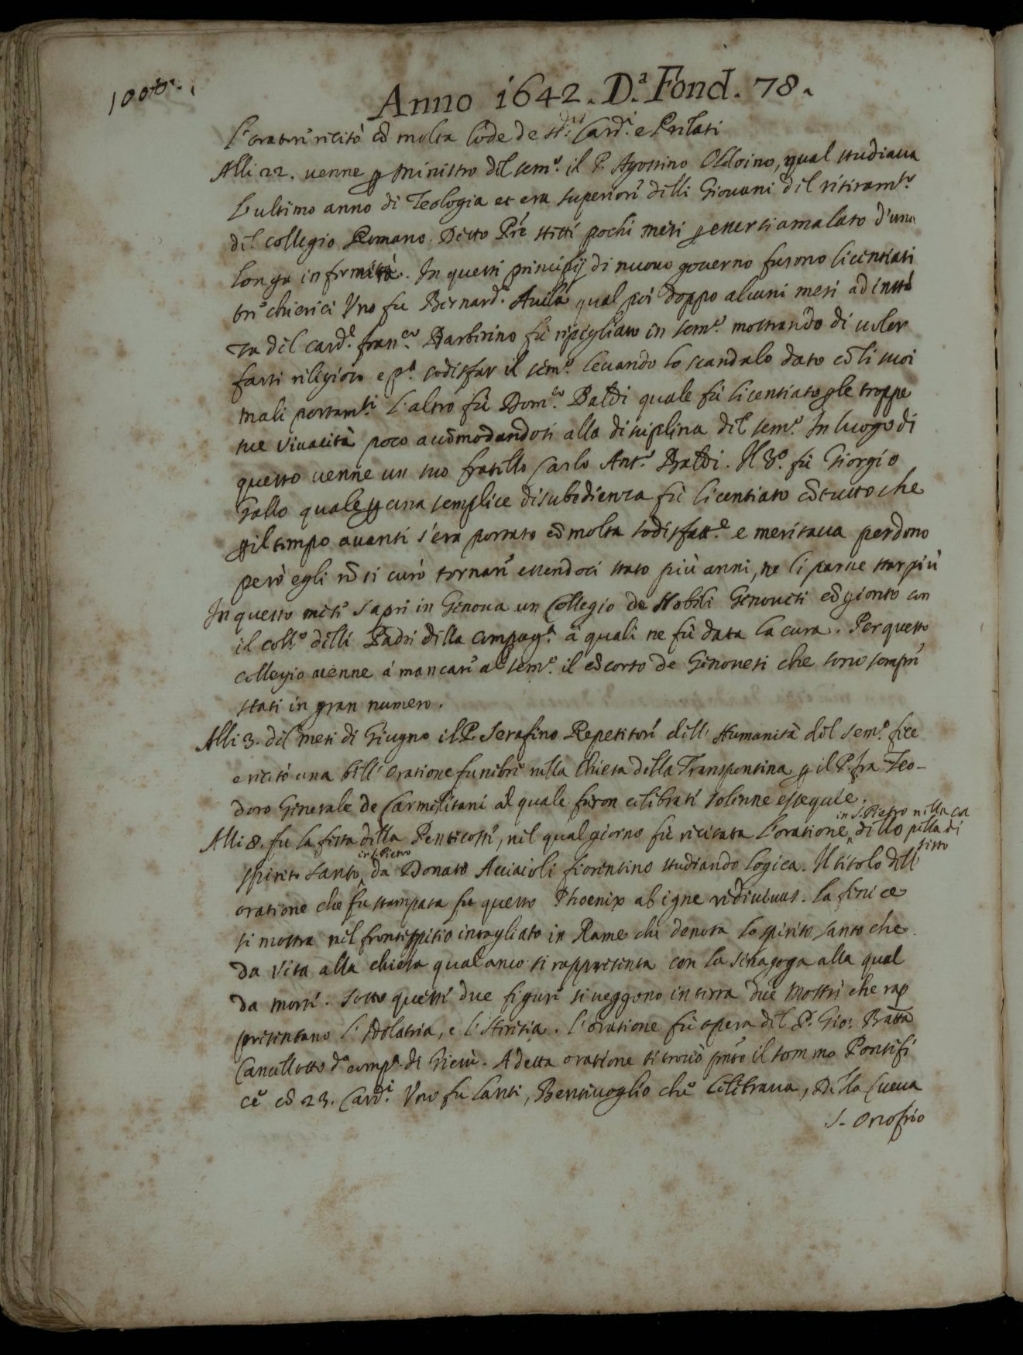 Anno 1642. D.ª Fond. 78.
L'orator recitò cõ molta lode de ss.ri Card.i e Prelati
Alli 22. venne p ministro del sem.º il P. Agostino Oldoino, qual studiava
l'ultimo anno di Teologia et era superiore delli Giovani del ritiram.to
del collegio Romano. Detto Pre stette pochi mesi p essersi amalato d'una
longa infermità. In questi principij di nuovo governo furono licentiati
tre chierici Uno fu Bernard.º Avila qual poi doppo alcuni mesi ad instã
za del Card.l Fran.co Barberino fù ripigliato in sem.º mostrando di voler
farsi religioso e p.ª sodisfar il sem.º levando lo scandalo dato cõ li suoi
mali portam.ti L'altro fù Dom.co Baldi quale fù licentiato p le troppe
sue vivacità poco accõmodandosi alla disciplina del sem.º In luogo di
questo venne un suo fratello Carlo Ant.º Baldi. Il 3.º fù Giorgio
Gallo quale p una semplice disubidienza fù licentiato cõ tutto che
p il tempo avanti s'era portato cõ molta sodisfatt.e e meritava perdono
però egli nõ si curò tornare essendoci stato più anni, ne li parve star più
In questo mese s'aprì in Genova un Collegio de Nobili Genovesi cõgionto con
il coll.º delli Padri della compag.ª a quali ne fù data la cura. Per questo
collegio venne a mancare al sem.º il cõcorso de Genovesi che sono sempre
stati in gran numero.
Alli 3. del mese di Giugno il P. Serafino Repetitore dell' Humanità del sem.º fece
e recitò una bell' oratione funebre nella chiesa della Transpontina p il P. fra Teo-
doro Generale de Carmelitani al quale furon celebrati solenne essequie.
Alli 8. fu la festa della Pentecoste, nel qual giorno fù recitata l'oratione in S. Pietro nella ca dello pella di Sisto
spirito santo in S. Pietro da Donato Acciaioli fiorentino studiando logica. Il titolo dell'
oratione che fu stampata fu questo Phoenix ab igne redivivus. La fenice
si mostra nel frontispitio intagliato in Rame che denota lo spirito santo che
da vita alla chiesa qual anco si rappresenta con la sinagoga alla qual
da morte. Sotto queste due figure si veggono in terra due mostri che rap
presentano l'Idolatria, e l'Heresia. L'oratione fù opera del P. Gio: Batta
Cancellotto d.ª comp.ª di Giesù. A detta oratione si trovò pnte il sommo Pontefi
ce cõ 23. Card.i Uno fu Lanti, Bentivoglio che celebrava, Della Cueva
S. Onofrio